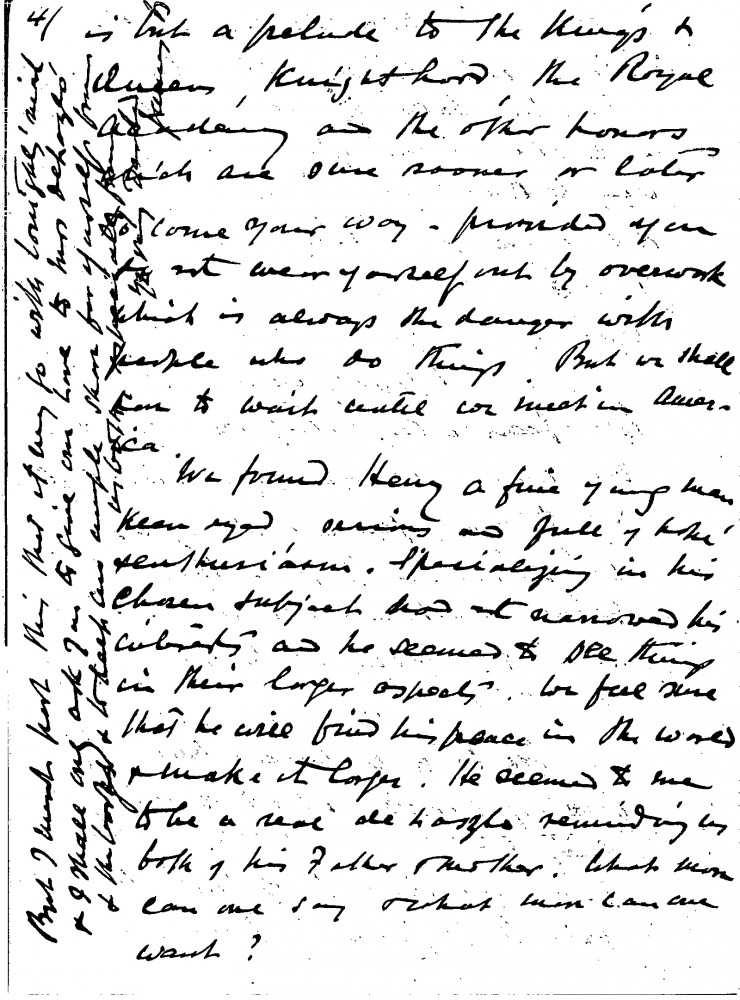 4/ is but a prelude to the King's &
Queen's Knighthood, the Royal
Academy and the other honors
which are sure sooner or later
to come your way – provided you
do not wear yourself out by overwork
which is always the danger with
people who do things. But we shall
have to wait until we meet in Amer-
ica.
We found Henry a fine young man
keen eyed serious and full of hope
& enthusiasm. Specializing in his
chosen subject had not narrowed his
interests and he seemed to see things
in their larger aspects. We feel sure
that he will find his place in the world
& make it larger. He seemed to me
to be a real de Laszlo reminding us
both of his Father & Mother. What more
can one say or what more can one
want?
But I must post this that it may go with tonight's mail
& I shall only ask you to give our love to Mrs de Laszlo
& to keep an ample share for yourself from
us both